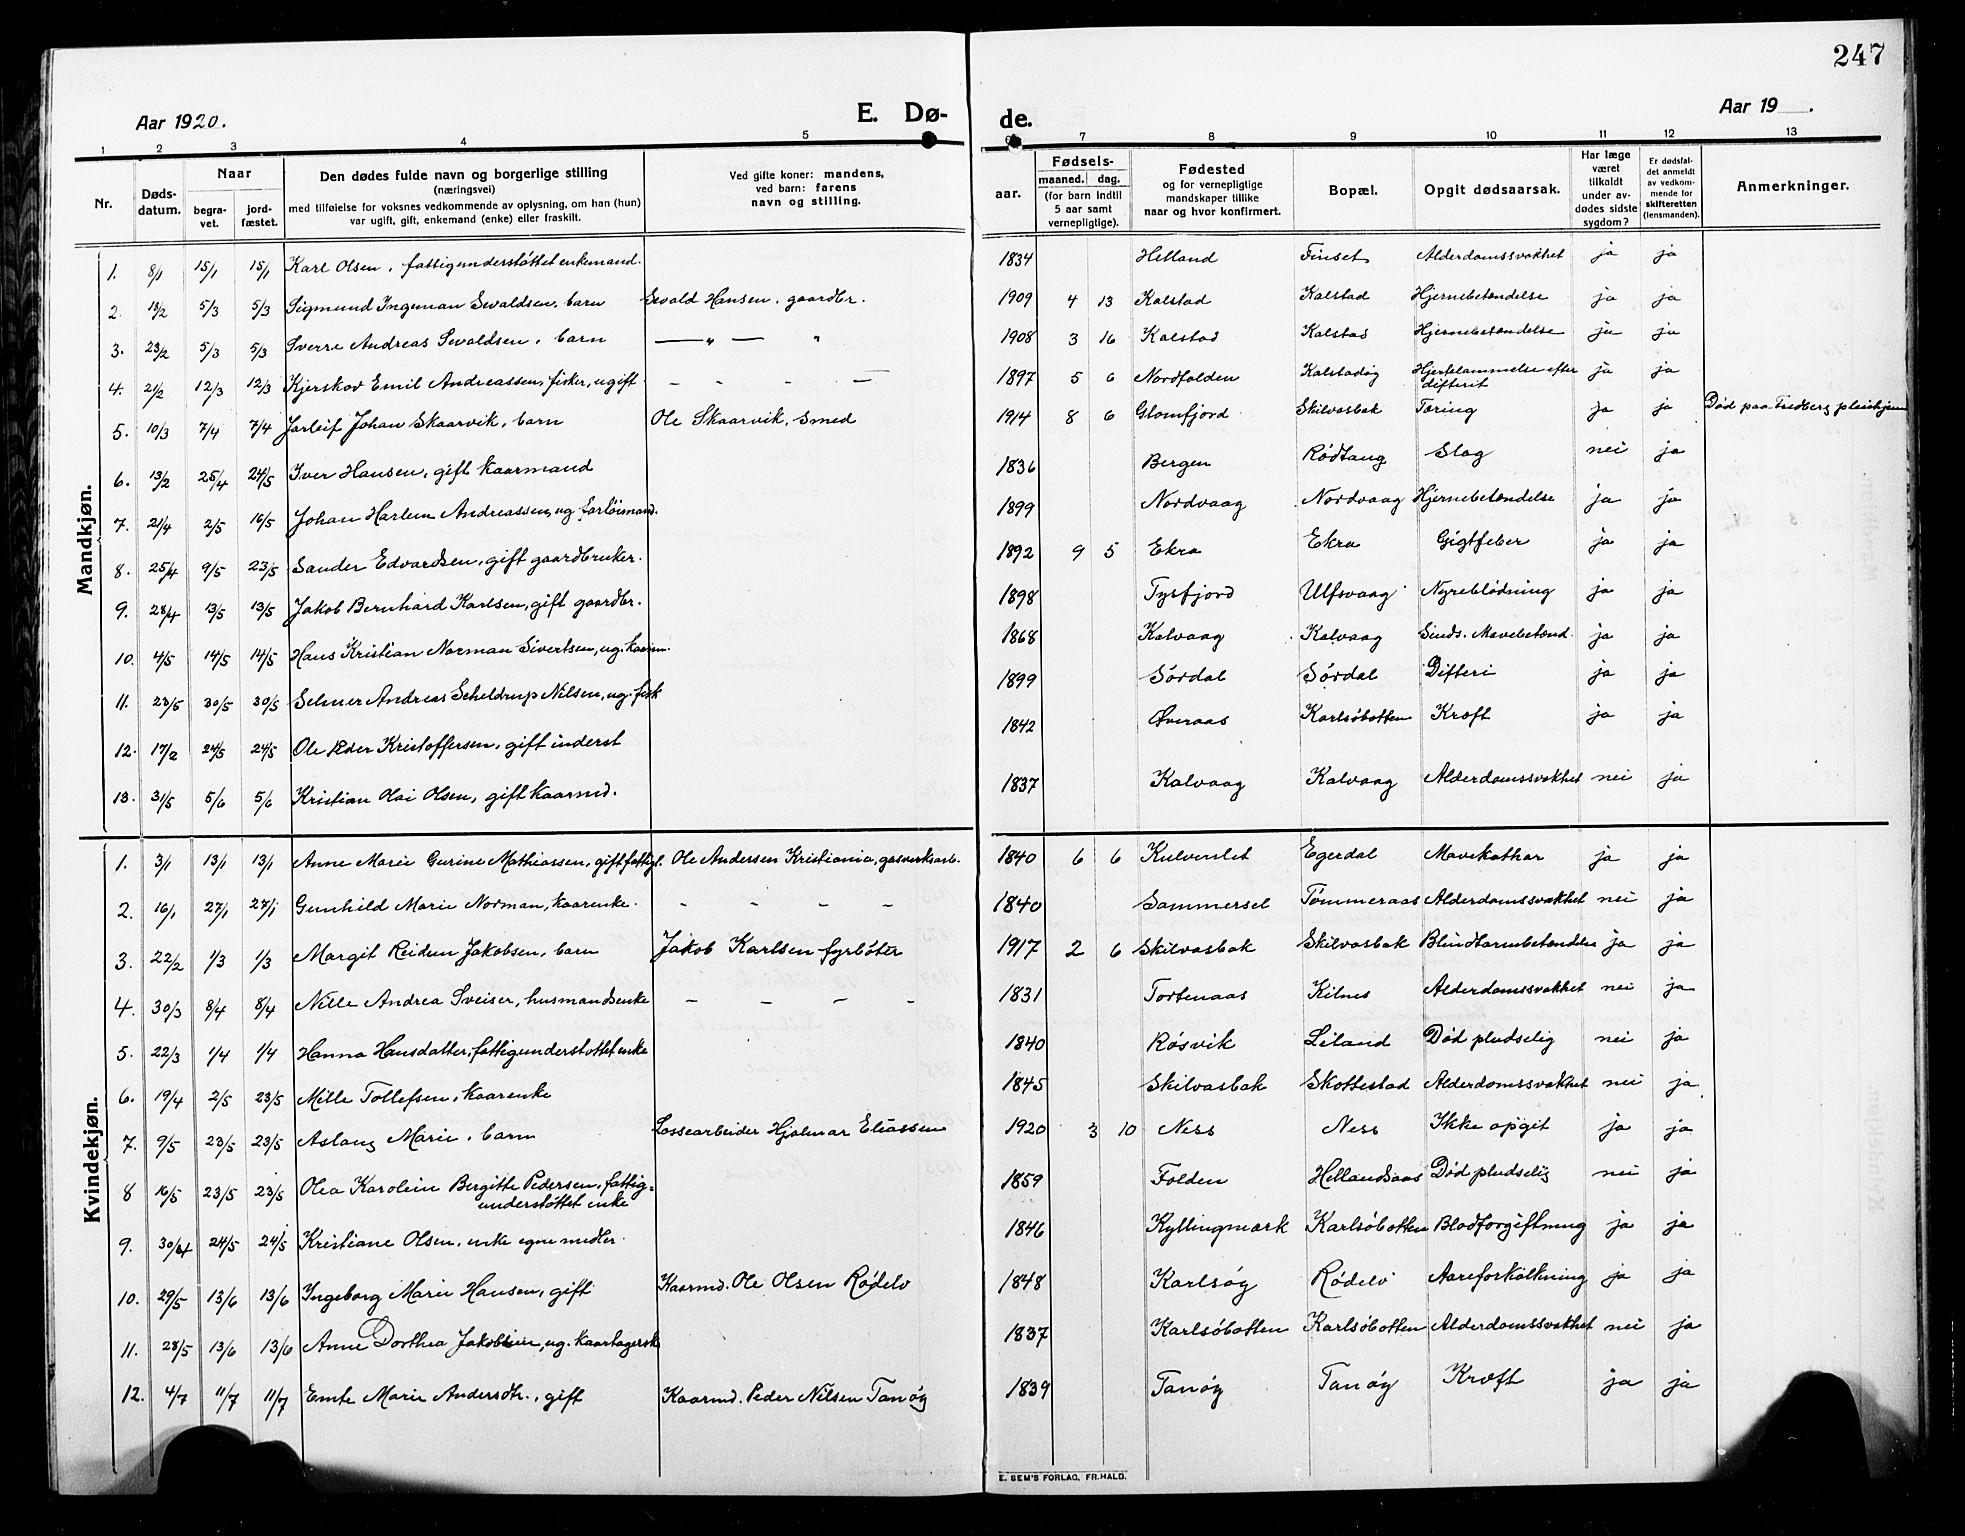 247
Aar 1920.
E. Dø-
de.
Aar 19 .
1 2 3 4 5 6 7 8 9 10 11 12 13
Nr.
Døds-
datum.
Naar
begra-
vet.
jord-
fæstet.
Den dødes fulde navn og borgerlige stilling
(næringsvei)
med tilføielse for voksnes vedkommende av oplysning, om han (hun)
var ugift, gift, enkemand (enke) eller fraskilt.
Ved gifte koner: mandens,
ved barn: farens
navn og stilling.
Fødsels-
aar. maaned. dag.
(for barn indtil
5 aar samt
vernepligtige).
Fødested
og for vernepligtige
mandskaper tillike
naar og hvor konfirmert.
Bopæl.
Opgit dødsaarsak.
Har læge
været
tilkaldt
under av-
dødes sidste
sygdom?
Er dødsfal-
det anmeldt
av vedkom-
mende for
skifteretten
(lensmanden).
Anmerkninger.
Mandkjøn.
1. 8/1 15/1 15/1 Karl Olsen, fattigunderstøttet enkemand. 1834 Helland Finset Alderdomssvakhet ja ja
2. 13/2 5/3 5/3 Sigmund Ingeman Sevaldsen, barn Sevald Hansen, gaardbr. 1909 4 13 Kalstad Kalstad Hjernebetændelse ja ja
3. 23/2 5/3 5/3 Sverre Andreas Sevaldsen, barn — " — " 1908 3 16 Kalstad Kalstad Hjernebetændelse ja ja
4. 21/2 12/3 12/3 Kjerskov Emil Andreassen, fisker, ugift - - - — 1897 5 6 Nordfolden Kalstadøy Hjertelammelse efter difterit ja ja
5. 10/3 7/4 7/4 Jarleif Johan Skaarvik, barn Ole Skaarvik, Smed 1914 8 6 Glomfjord Skilvasbak Tæring ja ja Død paa Fredberg pleiehjem
6. 13/2 25/4 24/5 Iver Hansen, gift kaarmand 1836 Bergen Rødtang Slag nei ja
7. 21/4 2/5 16/5 Johan Harlem Andreassen, ug. 1899 Nordvaag Nordvaag Hjernebetændelse ja ja
8. 25/4 9/5 23/5 Sander Edvardsen, gift gaardbruker. 1892 9 5 Ekra Ekra Gigtfeber ja ja
9. 28/4 13/5 13/5 Jakob Bernhard Karlsen, gift gaardbr. 1898 Tysfjord Ulfsvaag Nyreblødning ja ja
10. 4/5 14/5 14/5 Hans Kristian Norman Sivertsen, ug. kaarm. 1868 Kalvaag Kalvaag Sinds. Mavebetænd. ja ja
11. 23/5 30/5 30/5 Selmer Andreas Scheldrup Nilsen, ug. fisk 1899 Sørdal Sørdal Difteri ja ja
12. 17/2 24/5 24/5 Ole Peder Kristoffersen, gift inderst 1842 Øveraas Karlsøbotten Kræft ja ja
13. 31/5 5/6 5/6 Kristian Olai Olsen, gift kaarmd. 1837 Kalvaag Kalvaag Alderdomssvakhet nei ja
Kvindekjøn.
1. 3/1 13/1 13/1 Anne Marie Gurine Mathiassen, gift fattigl. Ole Andersen Kristiania, gasverksarb. 1840 6 6 Kulverslet Egerdal Mavekathar ja ja
2. 16/1 27/1 27/1 Gunhild Marie Norman, kaarenke. - - - - 1840 Sommersel Tømmeraas Alderdomssvakhet nei ja
3. 22/2 1/3 1/3 Margit Reidun Jakobsen, barn Jakob Karlsen fyrbøter 1917 2 6 Skilvasbak Skilvasbak Blindtarmbetændelse ja ja
4. 30/3 8/4 8/4 Nille Andrea Sveiser, husmandsenke - - - - 1831 Tortenaas Kilnes Alderdomssvakhet nei ja
5. 22/3 1/4 1/4 Hanna Hansdatter, fattigunderstøttet enke 1840 Røsvik Leland Død pludselig nei ja
6. 19/4 2/5 23/5 Mille Tollefsen, kaarenke 1845 Skilvasbak Skottestad Alderdomssvakhet nei ja
7. 9/5 23/5 23/5 Aslaug Marie, barn Lossearbeider Hjalmar Eliassen 1920 3 10 Ness Ness Ikke opgit ja ja
8 16/5 23/5 23/5 Olea Karolein Bergitte Pedersen, fattig= 1859 Folden Hellandsaas Død pludselig nei ja
understøttet enke
9. 30/4 24/5 24/5 Kristiane Olsen, enke egne midler. 1846 Kyllingmark Karlsøbotten Blodforgiftning ja ja
10. 29/5 13/6 13/6 Ingeborg Marie Hansen, gift Kaarmd. Ole Olsen Rødelv 1848 Karlsøy Rødelv Aareforkalkning ja ja
11. 28/5 13/6 13/6 Anne Dorthea Jakobsen, ug. kaartagersk 1837 Karlsøbotten Karlsøbotten Alderdomssvakhet nei ja
12. 4/7 11/7 11/7 Emte Marie Andersdtr., gift Kaarmd. Peder Nilsen Tanøy 1839 Tanøy Tanøy Kræft ja ja
E. SEM'S FORLAG, FR.HALD.